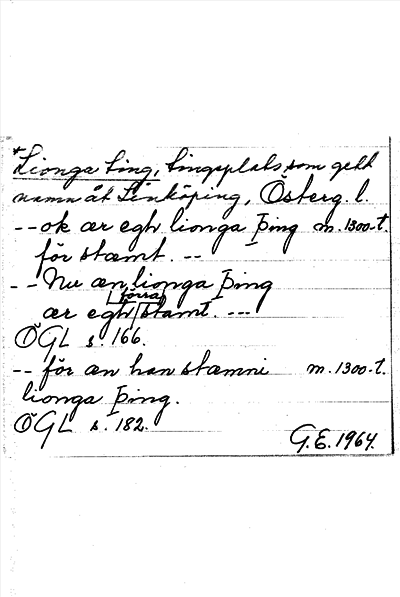 *Lionga ting, tingsplats, som gett
namn åt Linköping, Österg. l.
-- ok ær egh lionga Þing m. 1300-t.
för stæmt. --
-- Nu æn lionga Þing
förra
ær egh stamt. ---
ÖGL s. 166.
-- för æn han stæmni m. 1300-t.
lionga Þing.
ÖGL s. 182.
G.E. 1964.